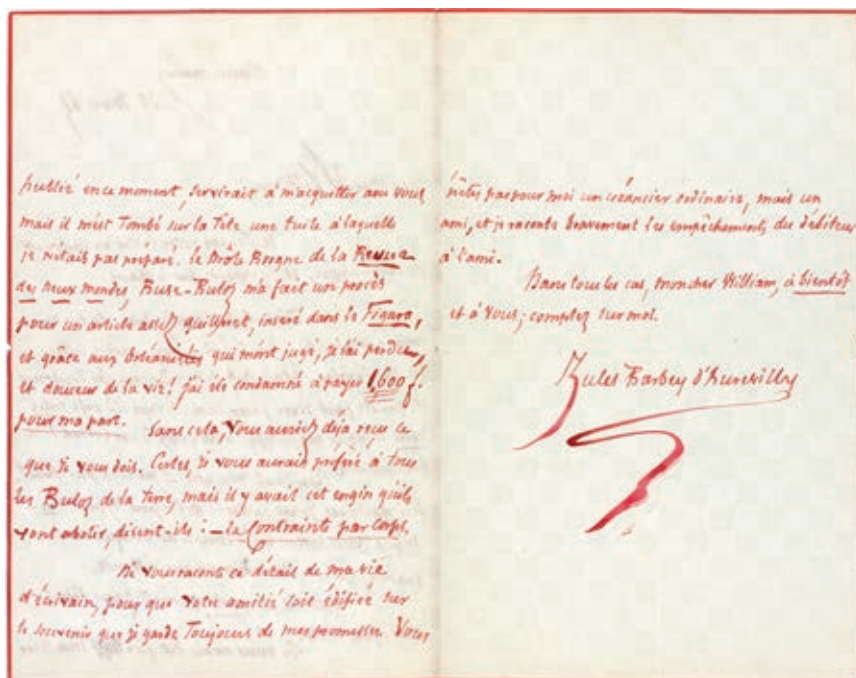 publié en ce moment, servirait à m'acquitter avec vous
mais il m'est tombé sur la Tête une tuile à laquelle
je n'étais pas préparé. Le Drôle Borgne de la Revue
des deux mondes, Buse-Buloz m'a fait un procès
pour un article assez guilleret, inséré dans le Figaro,
et grâce aux Orléanistes qui m'ont jugé, je l'ai perdu,
et douceur de la vie! j'ai été condamné à payer 1,600 f.
pour ma part. Sans cela, vous auriez déjà reçu ce
que je vous dois. Certes, je vous aurais préféré à tous
les Buloz de la terre, mais il y avait cet engin qu'ils
vont abolir, disent-ils : – la Contrainte par corps.
Je vous raconte ce détail de ma vie
d'écrivain, pour que votre amitié soit édifiée sur
le souvenir que je garde Toujours de mes promesses. Vous
n'êtes pas pour moi un créancier ordinaire, mais un
ami, et je raconte bravement les empêchements du débiteur
à l'ami.
Dans tous les cas, mon cher William, à bientôt
et à vous; comptez sur moi.
Jules Barbey d'Aurevilly